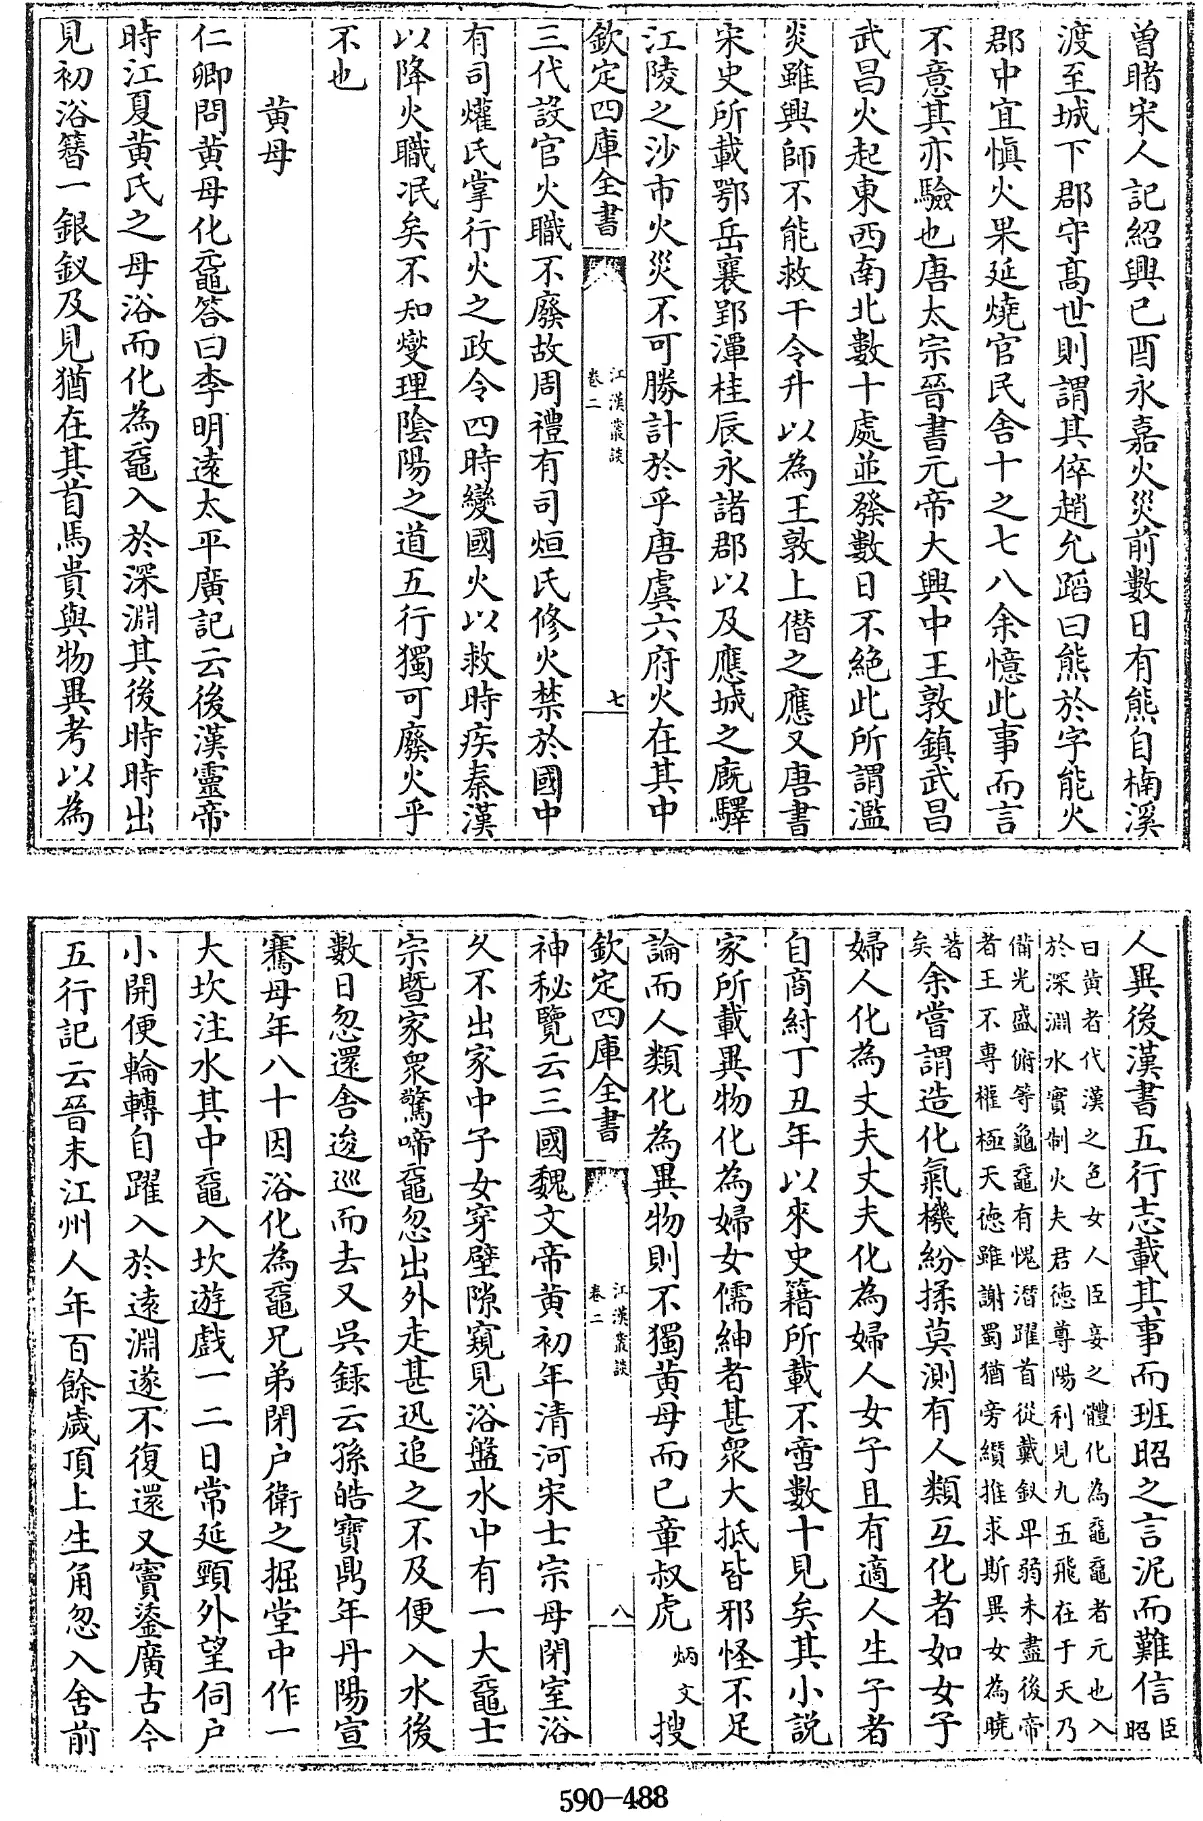 曾睹宋人記紹興己酉永嘉火災前數日有熊自楠溪
渡至城下郡守髙世則謂其倅趙允蹈曰熊於字能火
郡中宜慎火果延燒官民舍十之七八余憶此事而言
不意其亦驗也唐太宗晉書元帝大興中王敦鎮武昌
武昌火起東西南北數十處並發數日不絶此所謂濫
炎雖興師不能救干令升以為王敦上僭之應又唐書
宋史所載鄂岳襄郢潭桂辰永諸郡以及應城之廐驛
江陵之沙市火災不可勝計於乎唐虞六府火在其中
欽定四庫全書
江漢叢談
卷二
七
三代設官火職不廢故周禮有司烜氏修火禁於國中
有司爟氏掌行火之政令四時變國火以救時疾秦漢
以降火職泯矣不知燮理陰陽之道五行獨可廢火乎
不也
黄母
仁卿問黄母化黿答曰李明逺太平廣記云後漢靈帝
時江夏黄氏之母浴而化為黿入於深淵其後時時出
見初浴簪一銀釵及見猶在其首馬貴與物異考以為
人異後漢書五行志載其事而班昭之言泥而難信臣昭
曰黄者代漢之色女人臣妾之體化為黿黿者元也入
於深淵水實制火夫君徳尊陽利見九五飛在于天乃
備光盛俯等龜黿有愧潛躍首從戴釵卑弱未盡後帝
者王不專權極天徳雖謝蜀猶旁纘推求斯異女為曉
著矣余嘗謂造化氣機紛揉莫測有人類互化者如女子
婦人化為丈夫丈夫化為婦人女子且有適人生子者
自商紂丁丑年以來史籍所載不啻數十見矣其小説
家所載異物化為婦女儒紳者甚衆大抵皆邪怪不足
論而人類化為異物則不獨黄母而已章叔虎炳文搜
欽定四庫全書
江漢叢談
卷二
八
神秘覽云三國魏文帝黄初年清河宋士宗母閉室浴
久不出家中子女穿壁隙窺見浴盤水中有一大黿士
宗暨家衆驚啼黿忽出外走甚迅追之不及便入水後
數日忽還舍逡巡而去又吳録云孫皓寶鼎年丹陽宣
騫母年八十因浴化為黿兄弟閉户衛之掘堂中作一
大坎注水其中黿入坎遊戲一二日常延頸外望伺户
小開便輪轉自躍入於逺淵遂不復還又竇鞏廣古今
五行記云晉末江州人年百餘歲頂上生角忽入舍前
590-488